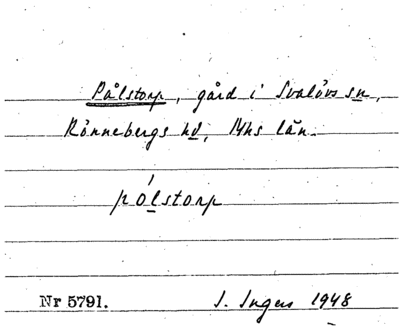 Pålstorp, gård i Svalövs sn,
Rönnebergs hd, Mhs län.
pólstorp
Nr 5791. I. Ingers 1948